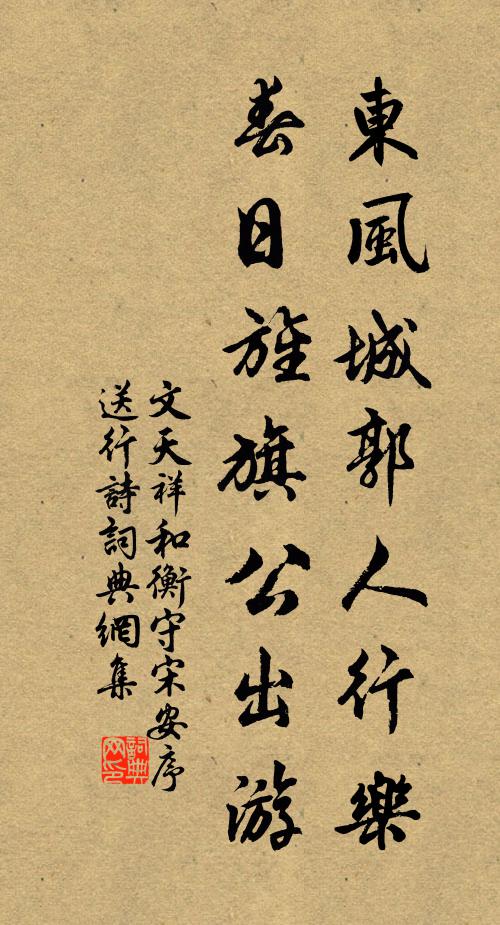 東風城郭人行樂
春日旌旗公出游
文天祥和衡守宋安序
送行詩詞典網集
詞典网印